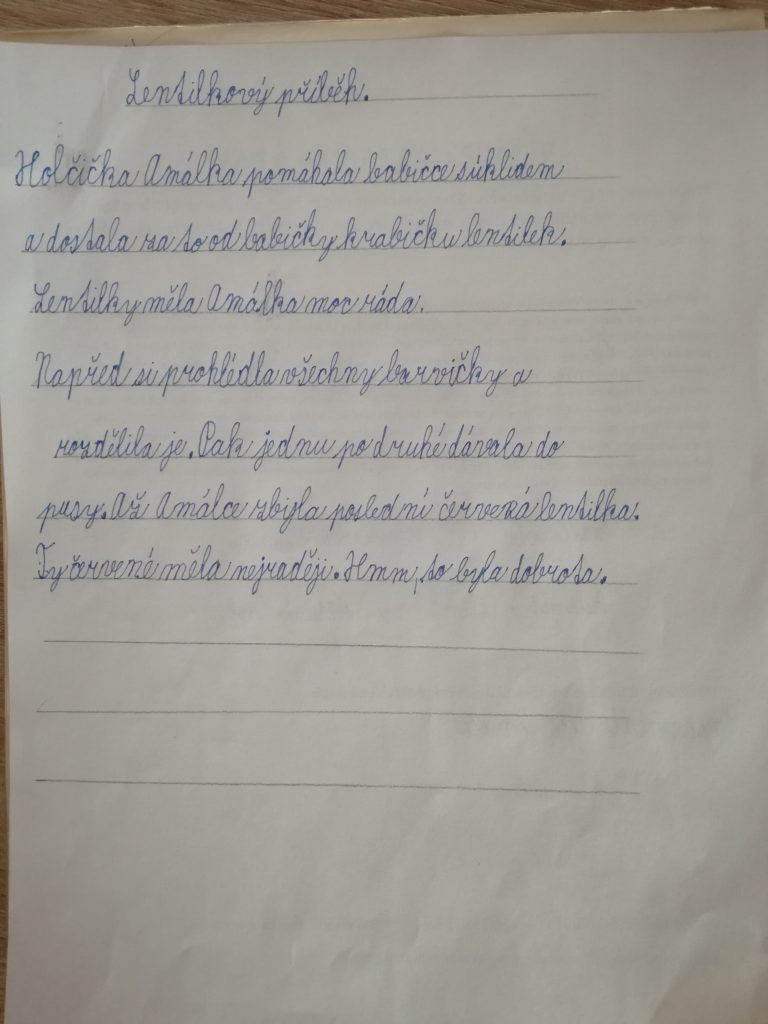 Lentilkový příběh.
Holčička Amálka pomáhala babičce s úklidem
a dostala za to od babičky krabičku lentilek.
Lentilky měla Amálka moc ráda.
Napřed si prohlédla všechny barvičky a
rozdělila je. Pak jednu po druhé dávala do
pusy. Až Amálce zbyla poslední červeká lentilka.
Ty červené měla nejraději. Hmm, to byla dobrota.